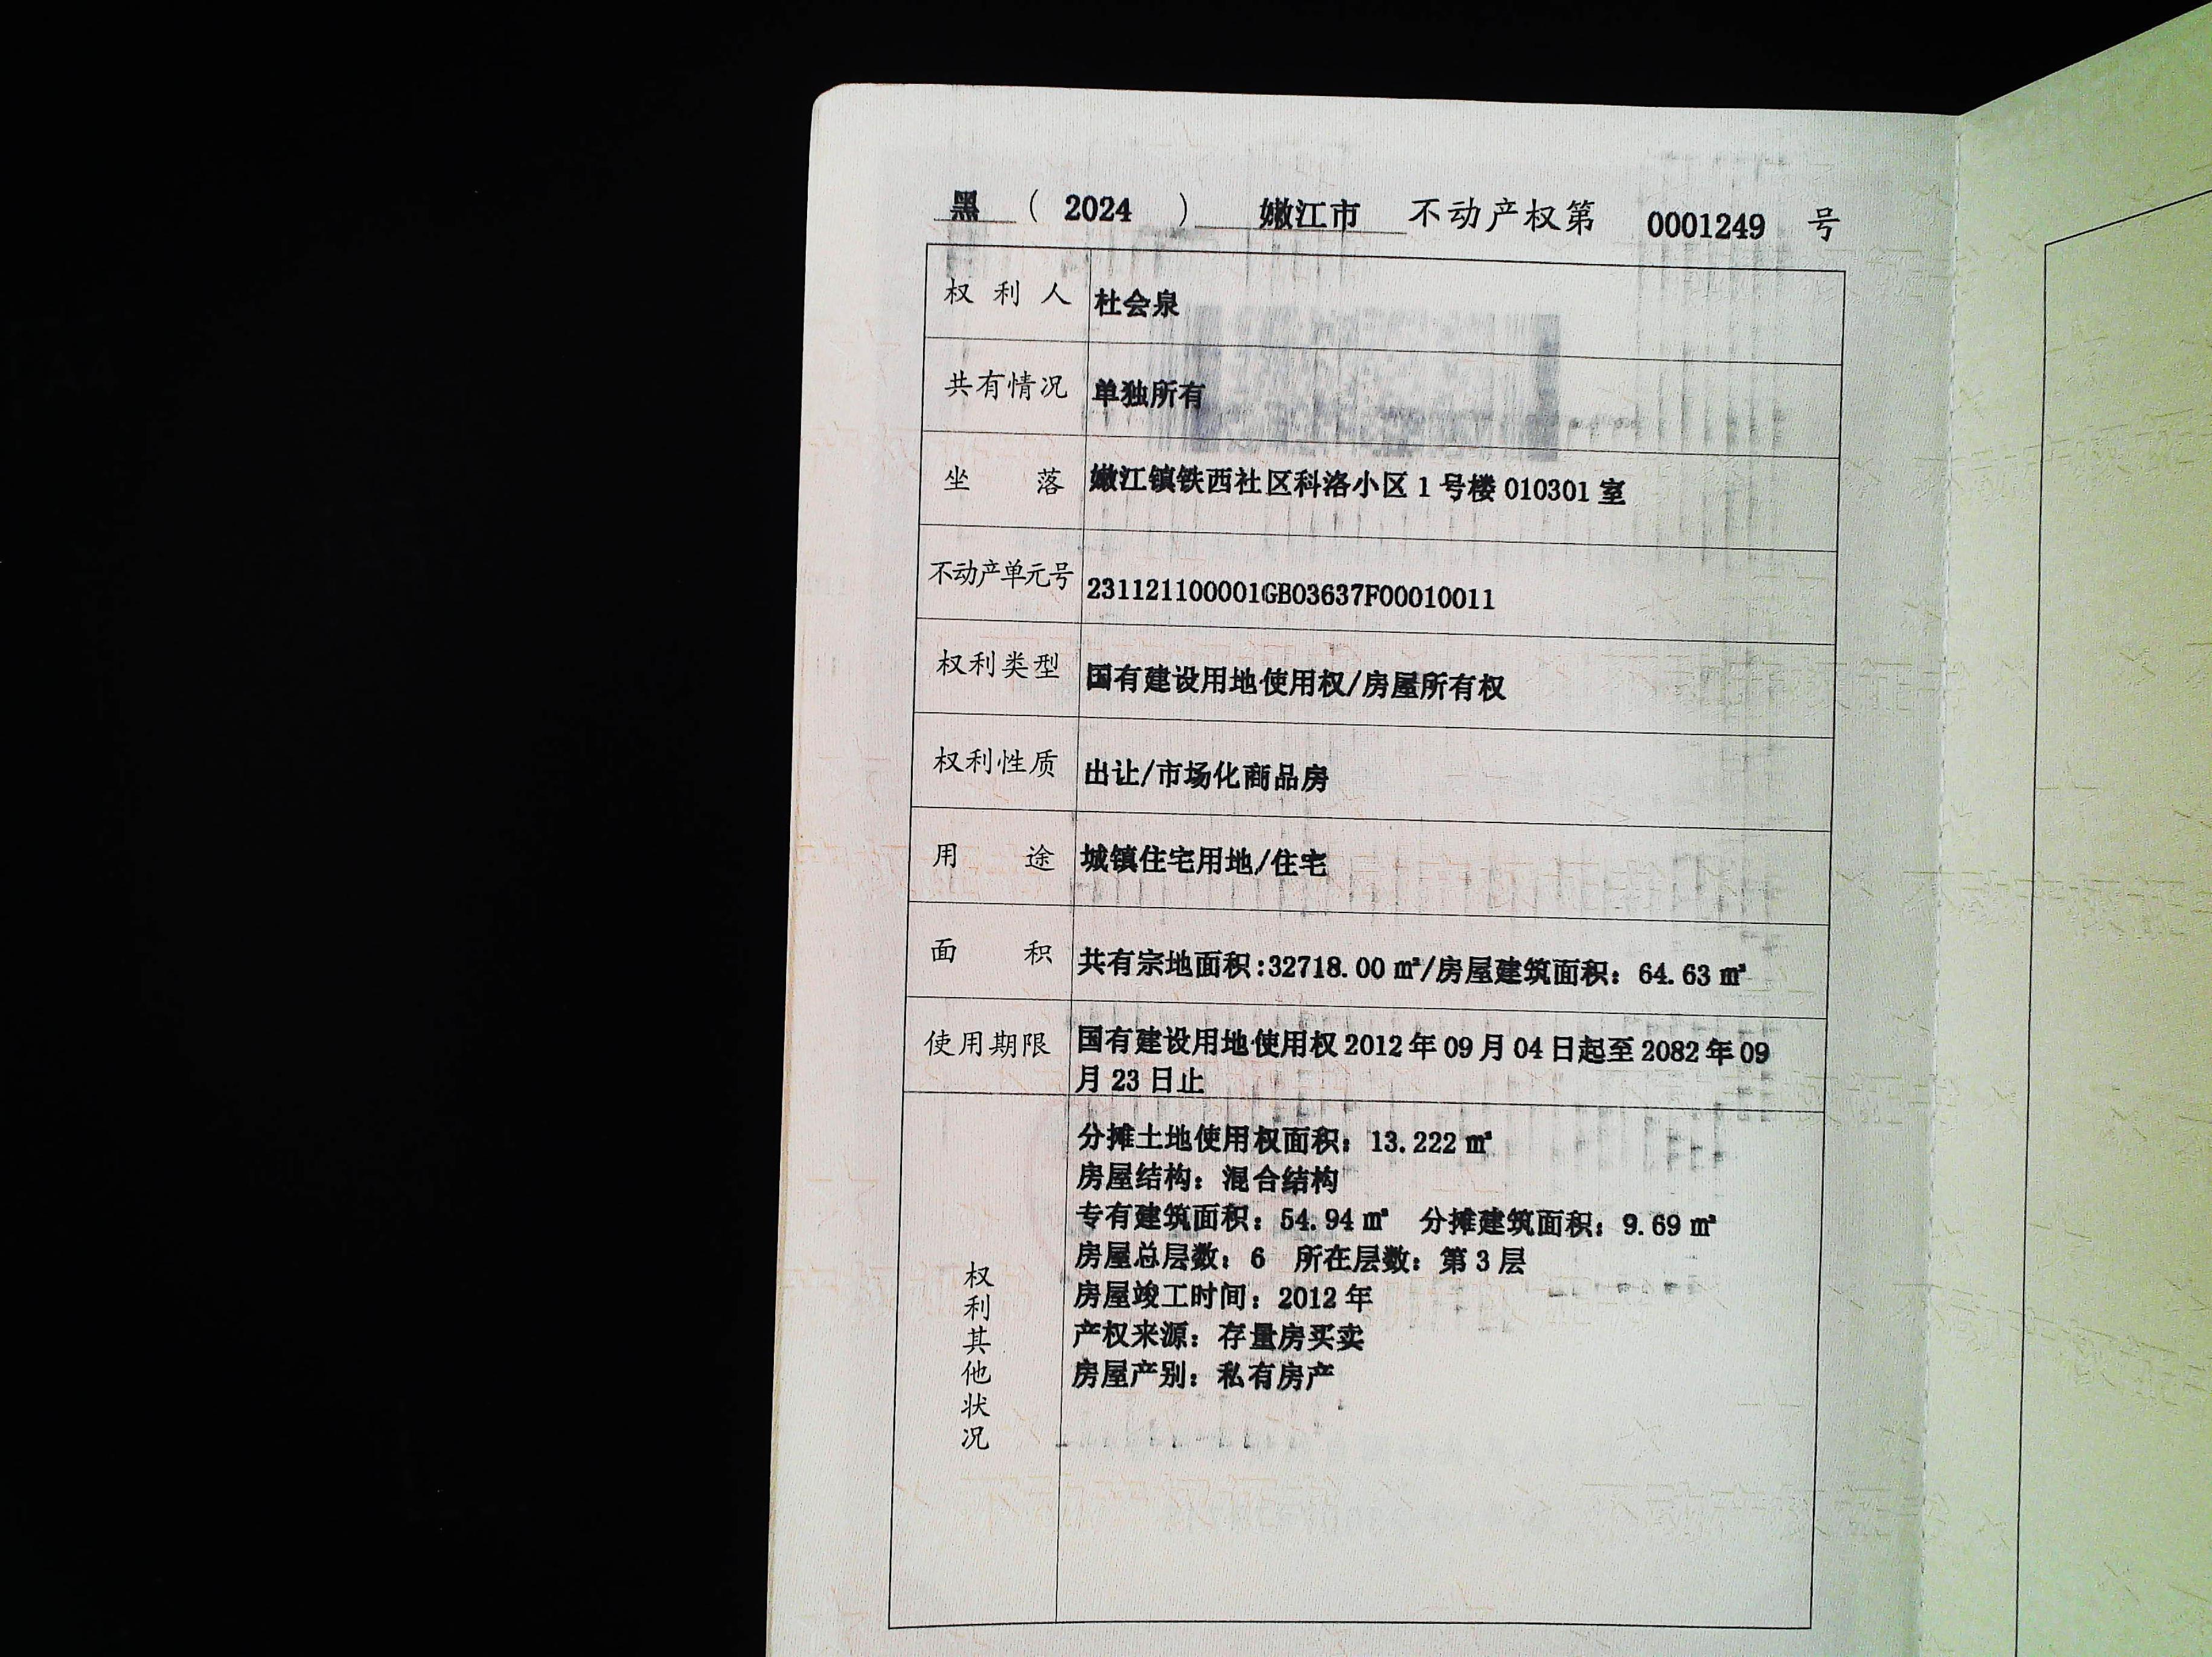 黑 （ 2024 ） 嫩江市 不动产权第 0001249 号
权利人 杜会泉
共有情况 单独所有
坐落 嫩江镇铁西社区科洛小区 1 号楼 010301 室
不动产单元号 231121100001GB03637F00010011
权利类型 国有建设用地使用权/房屋所有权
权利性质 出让/市场化商品房
用途 城镇住宅用地/住宅
面积 共有宗地面积:32718.00 ㎡/房屋建筑面积：64.63 ㎡
使用期限 国有建设用地使用权 2012 年 09 月 04 日起至 2082 年 09
月 23 日止
权利其他状况
分摊土地使用权面积：13.222 ㎡
房屋结构：混合结构
专有建筑面积：54.94 ㎡ 分摊建筑面积：9.69 ㎡
房屋总层数：6 所在层数：第 3 层
房屋竣工时间：2012 年
产权来源：存量房买卖
房屋产别：私有房产